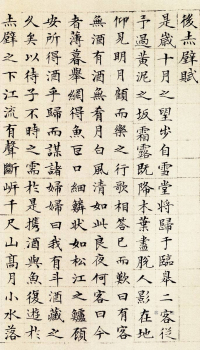 後赤壁賦
是歲十月之望步自雪堂將歸于臨皋二客從
予過黃泥之坂霜露既降木葉盡脫人影在地
仰見明月顧而樂之行歌相答已而歎曰有客
無酒有酒無肴月白風清如此良夜何客曰今
者薄暮舉網得魚巨口細鱗狀如松江之鱸顧
安所得酒乎歸而謀諸婦婦曰我有斗酒藏之
久矣以待子不時之需於是攜酒與魚復遊於
赤壁之下江流有聲斷岸千尺山高月小水落